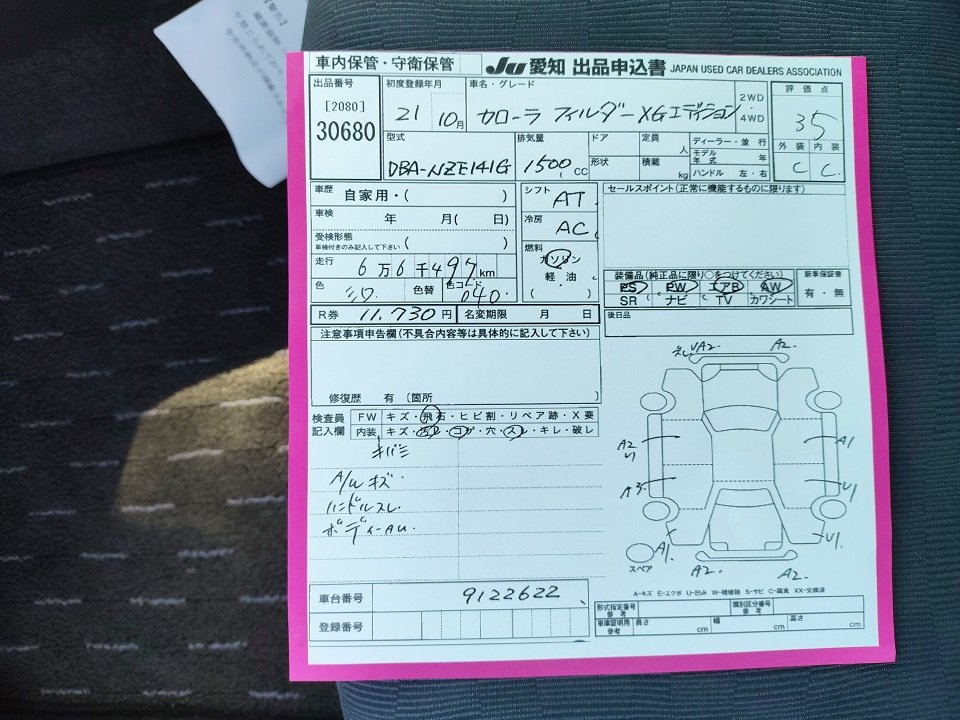 車内保管・守衛保管 JU 愛知 出品申込書 JAPAN USED CAR DEALERS ASSOCIATION
出品番号 [2080] 30680
初度登録年月 21 10月
車名・グレード カローラ フィルダー XGエディション 2WD ・ 4WD
評価点 35
外装 内装
C C
型式 DBA-NZE141G
排気量 1500 CC
ドア 形状
定員 人 積載 kg
ディーラー・並行
モデル年式 年
ハンドル 左・右
車歴 自家用・( )
車検 年 月( 日)
受検形態 車検付きのみ記入して下さい ( )
走行 6万6千497km
色 シロ 色替 色コード 040
シフト AT
冷房 AC
燃料 ガソリン ・ 軽油 ( )
セールスポイント(正常に機能するものに限ります)
装備品(純正品に限り○をつけてください)
PS PW エアB AW
SR ナビ TV カワシート
新車保証書 有・無
R券 11,730円 名変期限 月 日
後日品
注意事項申告欄(不具合内容等は具体的に記入して下さい)
修復歴 有 〔箇所 〕
検査員記入欄
FW キズ・飛石・ヒビ割・リペア跡・X要
内装 キズ・汚レ・コゲ・穴・スレ・キレ・破レ
キバミ
A/Wキズ
ハンドルスレ
ボディーAU
UA2 A2
A2 A1
A3 U1
A1 U1
スペア
A2 A2
A-キズ E-エクボ U-凹み W-補修跡 S-サビ C-腐食 XX-交換済
車台番号 9122622
登録番号
形式指定番号 参考 類別区分番号 参考
車庫証明用 参考 長さ cm 幅 cm 高さ cm